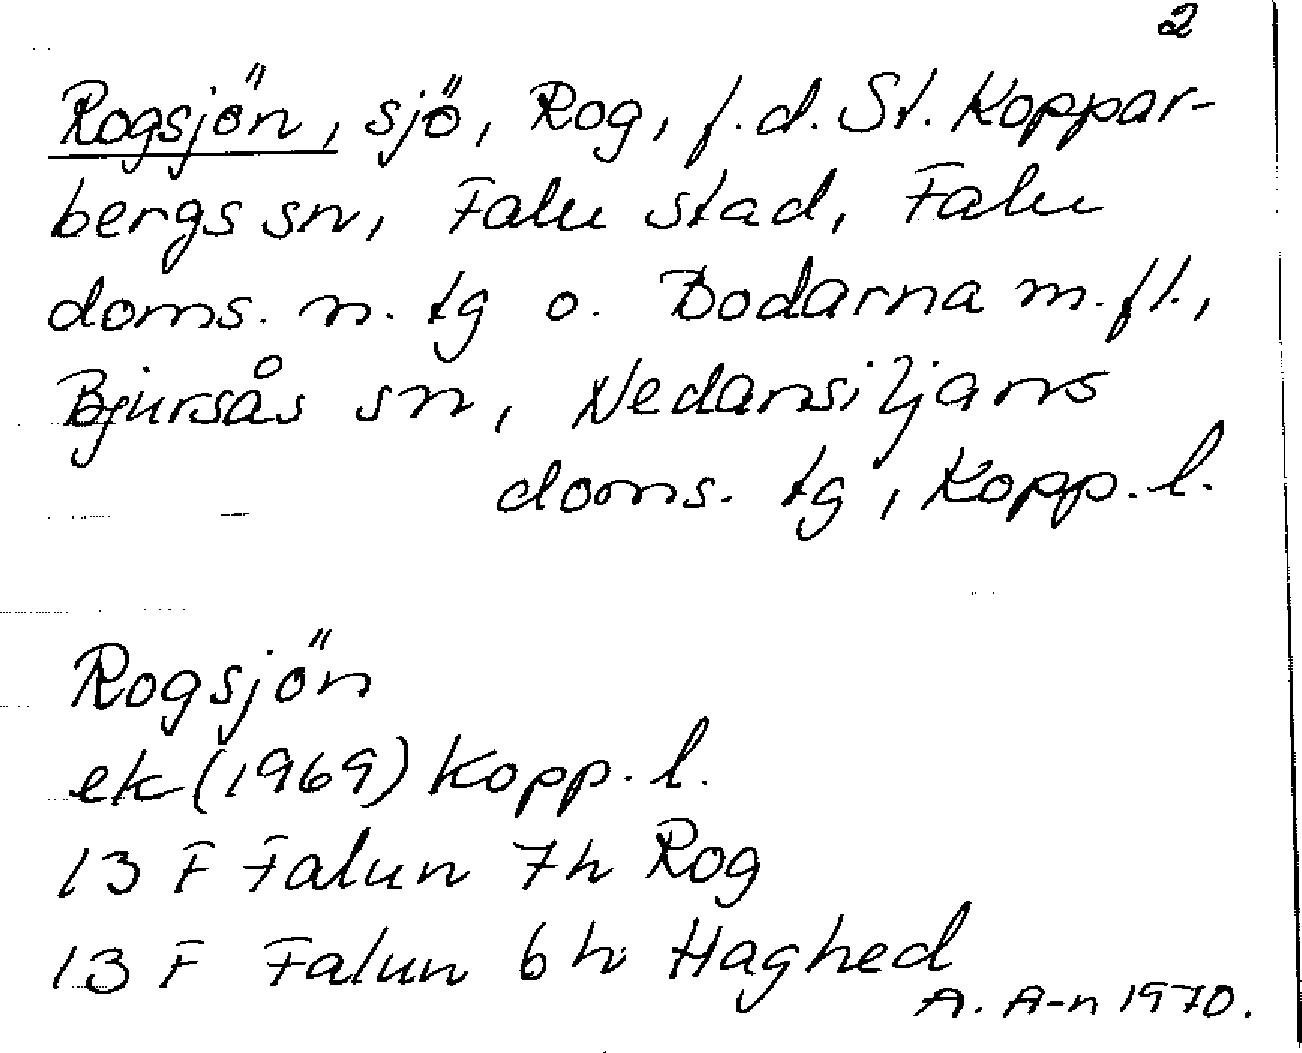 2
Rogsjön, sjö, Rog, f.d. St. Koppar-
bergs sn, Falu stad, Falu
doms. n. tg o. Bodarna m.fl.,
Bjursås sn, Nedansiljans
doms. tg, Kopp. l.
Rogsjön
ek (1969) Kopp. l.
13 F Falun 7h Rog
13 F Falun 6h Haghed
A. A-n 1970.